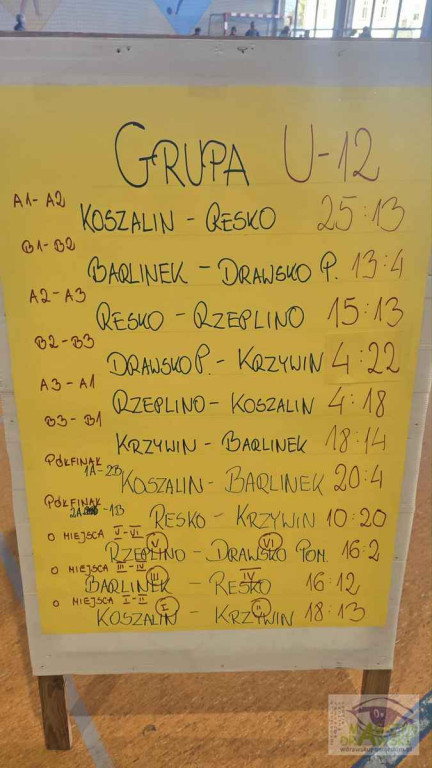 GRUPA U-12
A1-A2 KOSZALIN - RESKO 25:13
B1-B2 BARLINEK - DRAWSKO P. 13:4
A2-A3 RESKO - RZEPLINO 15:13
B2-B3 DRAWSKO P. - KRZYWIN 4:22
A3-A1 RZEPLINO - KOSZALIN 4:18
B3-B1 KRZYWIN - BARLINEK 18:14
PÓŁFINAŁ 1A-2B KOSZALIN - BARLINEK 20:4
PÓŁFINAŁ 2A-1B RESKO - KRZYWIN 10:20
O MIEJSCA V-VI
RZEPLINO V - DRAWSKO VI POM. 16:2
O MIEJSCA III-IV
BARLINEK III - RESKO IV 16:12
O MIEJSCA I-II
KOSZALIN I - KRZYWIN II 18:13